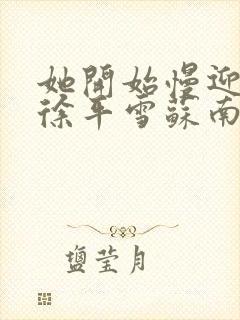 她開始慢迎
徐平雪蘇南
鹽莹月